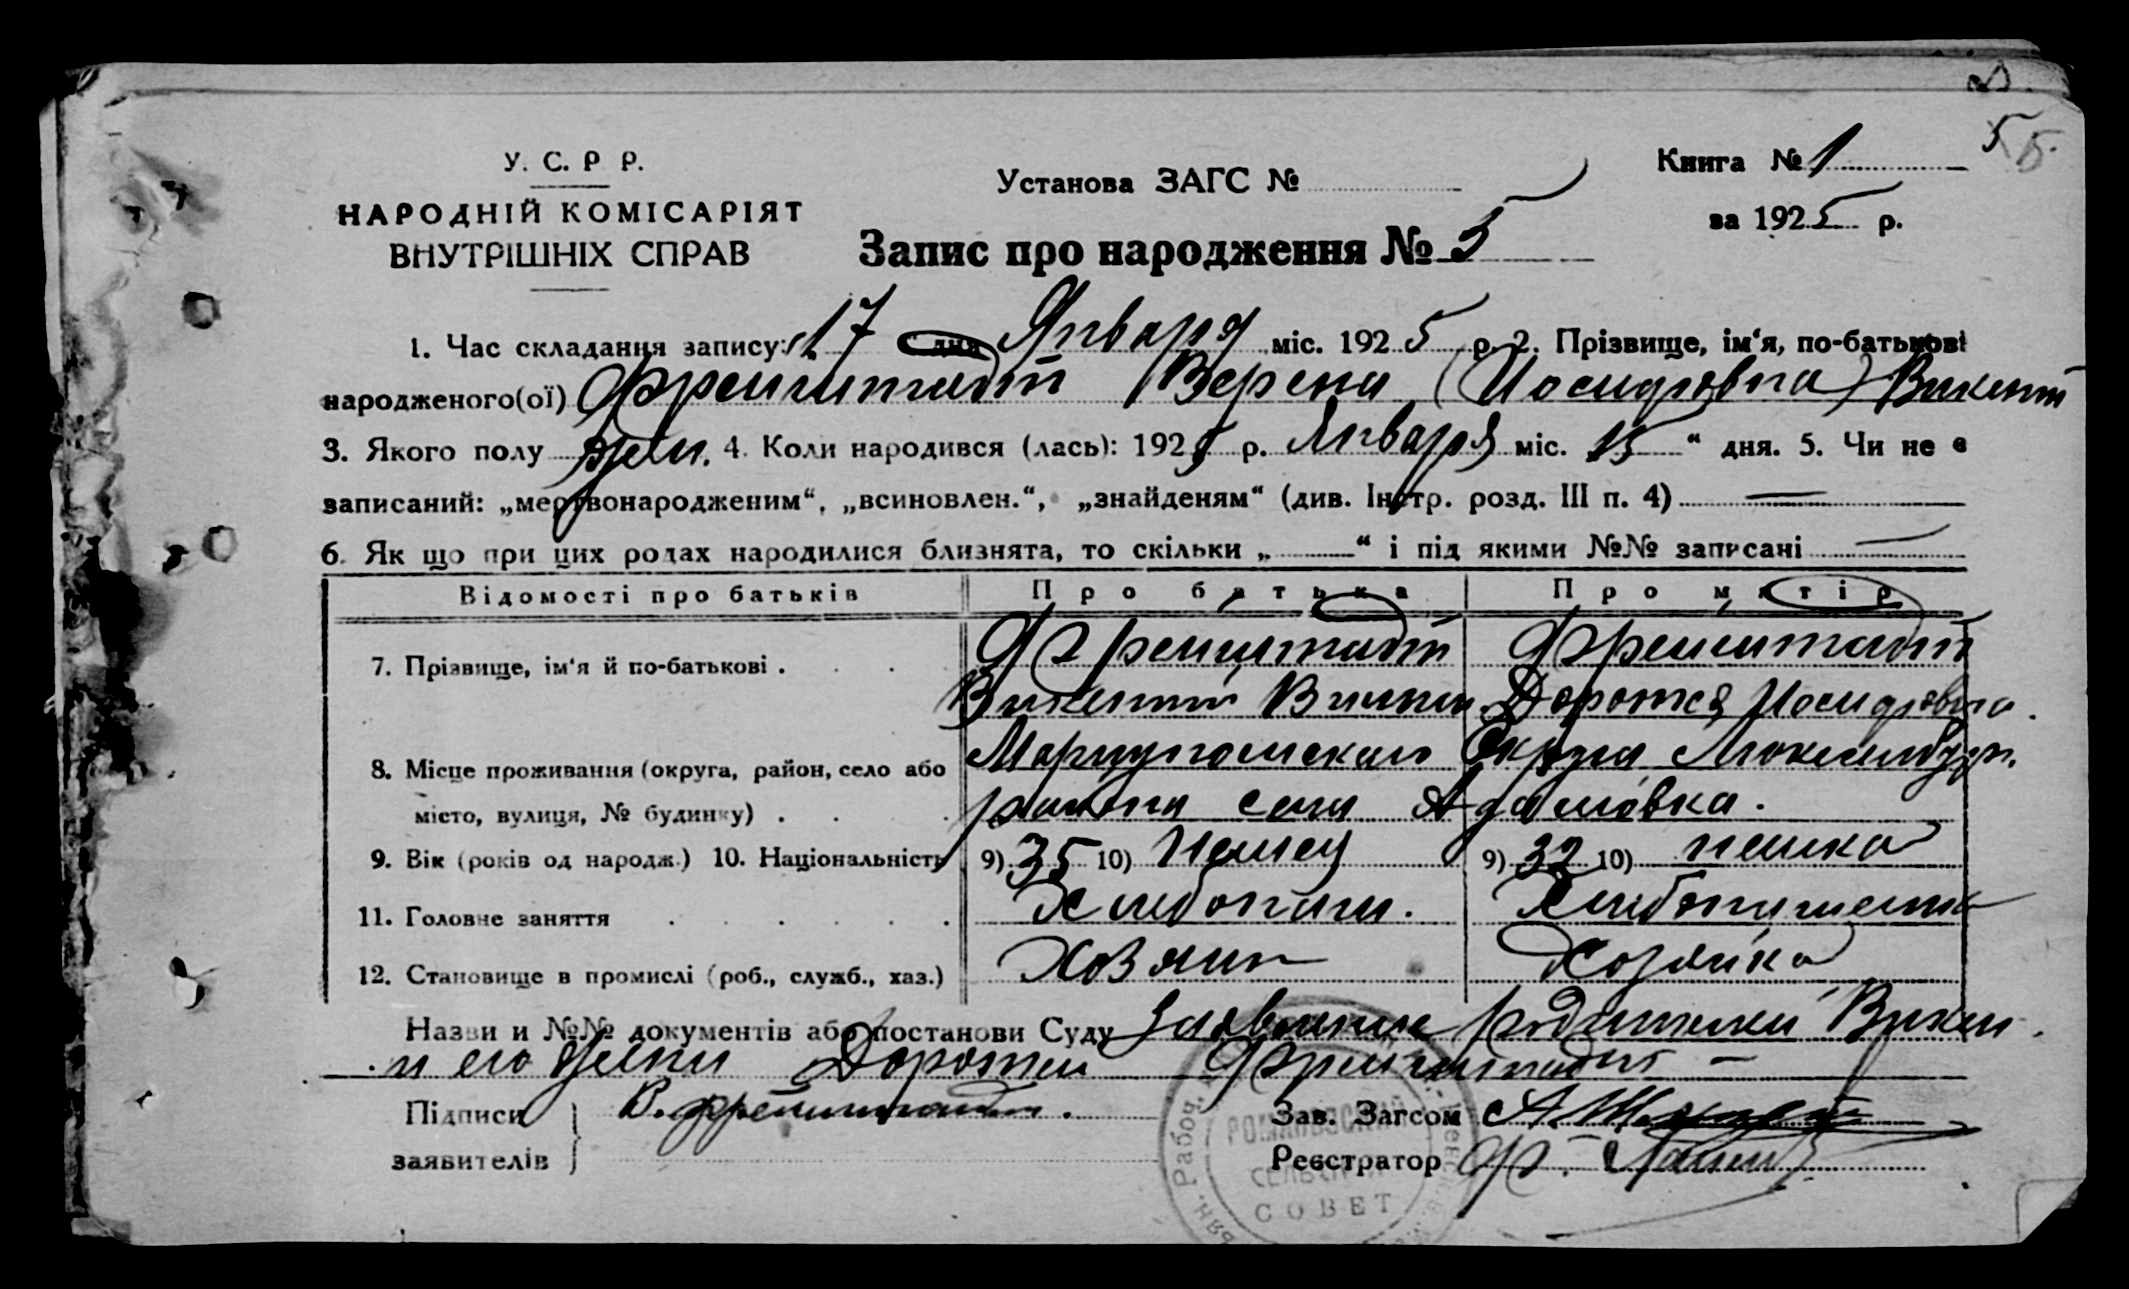 5 Б.
У. С. Р Р.
НАРОДНІЙ КОМІСАРІЯТ
ВНУТРІШНІХ СПРАВ
Установа ЗАГС №
Книга № 1
за 1925 р.
Запис про народження № 5
1. Час складання запису: 17 дня Января міс. 1925 р. 2. Прізвище, ім‘я, по-батькові
народженого(ої) Фрейштадт Верена (Иосифовна) Викент
3. Якого полу жен. 4. Коли народився (лась): 1925 р. Января міс. 15 “ дня. 5. Чи не є
записаний: „мертвонародженим“, „всиновлен.“, „знайденям“ (див. Інстр. розд. III п. 4) —
6. Як що при цих родах народилися близнята, то скільки „ “ і під якими №№ записані —
Відомості про батьків Про батька Про матір
7. Прізвище, ім‘я й по-батькові . Фрейштадт Фрейштадт
Викентий Доротея Иосифовна.
8. Місце проживання (округа, район, село або Мариупольского Округа Люксембург.
місто, вулиця, № будинку) . района села Адамовка.
9. Вік (років од народж.) 10. Національність 9) 35 10) Немец 9) 32 10) немка
11. Головне заняття Хлебопаш. Хлебопашество
12. Становище в промислі (роб., служб., хаз.) Хозяин Хозяйка
Назви и №№ документів або постанови Суду Заявление родителей Викен.
и его жены Доротеи Фрейштадт —
Підписи В. Фрейштадт. Зав. Загсом А.
заявителів Реєстратор Ф.
Рабоч.
РОМАНОВСКИЙ
СЕЛЬСКИЙ
СОВЕТ